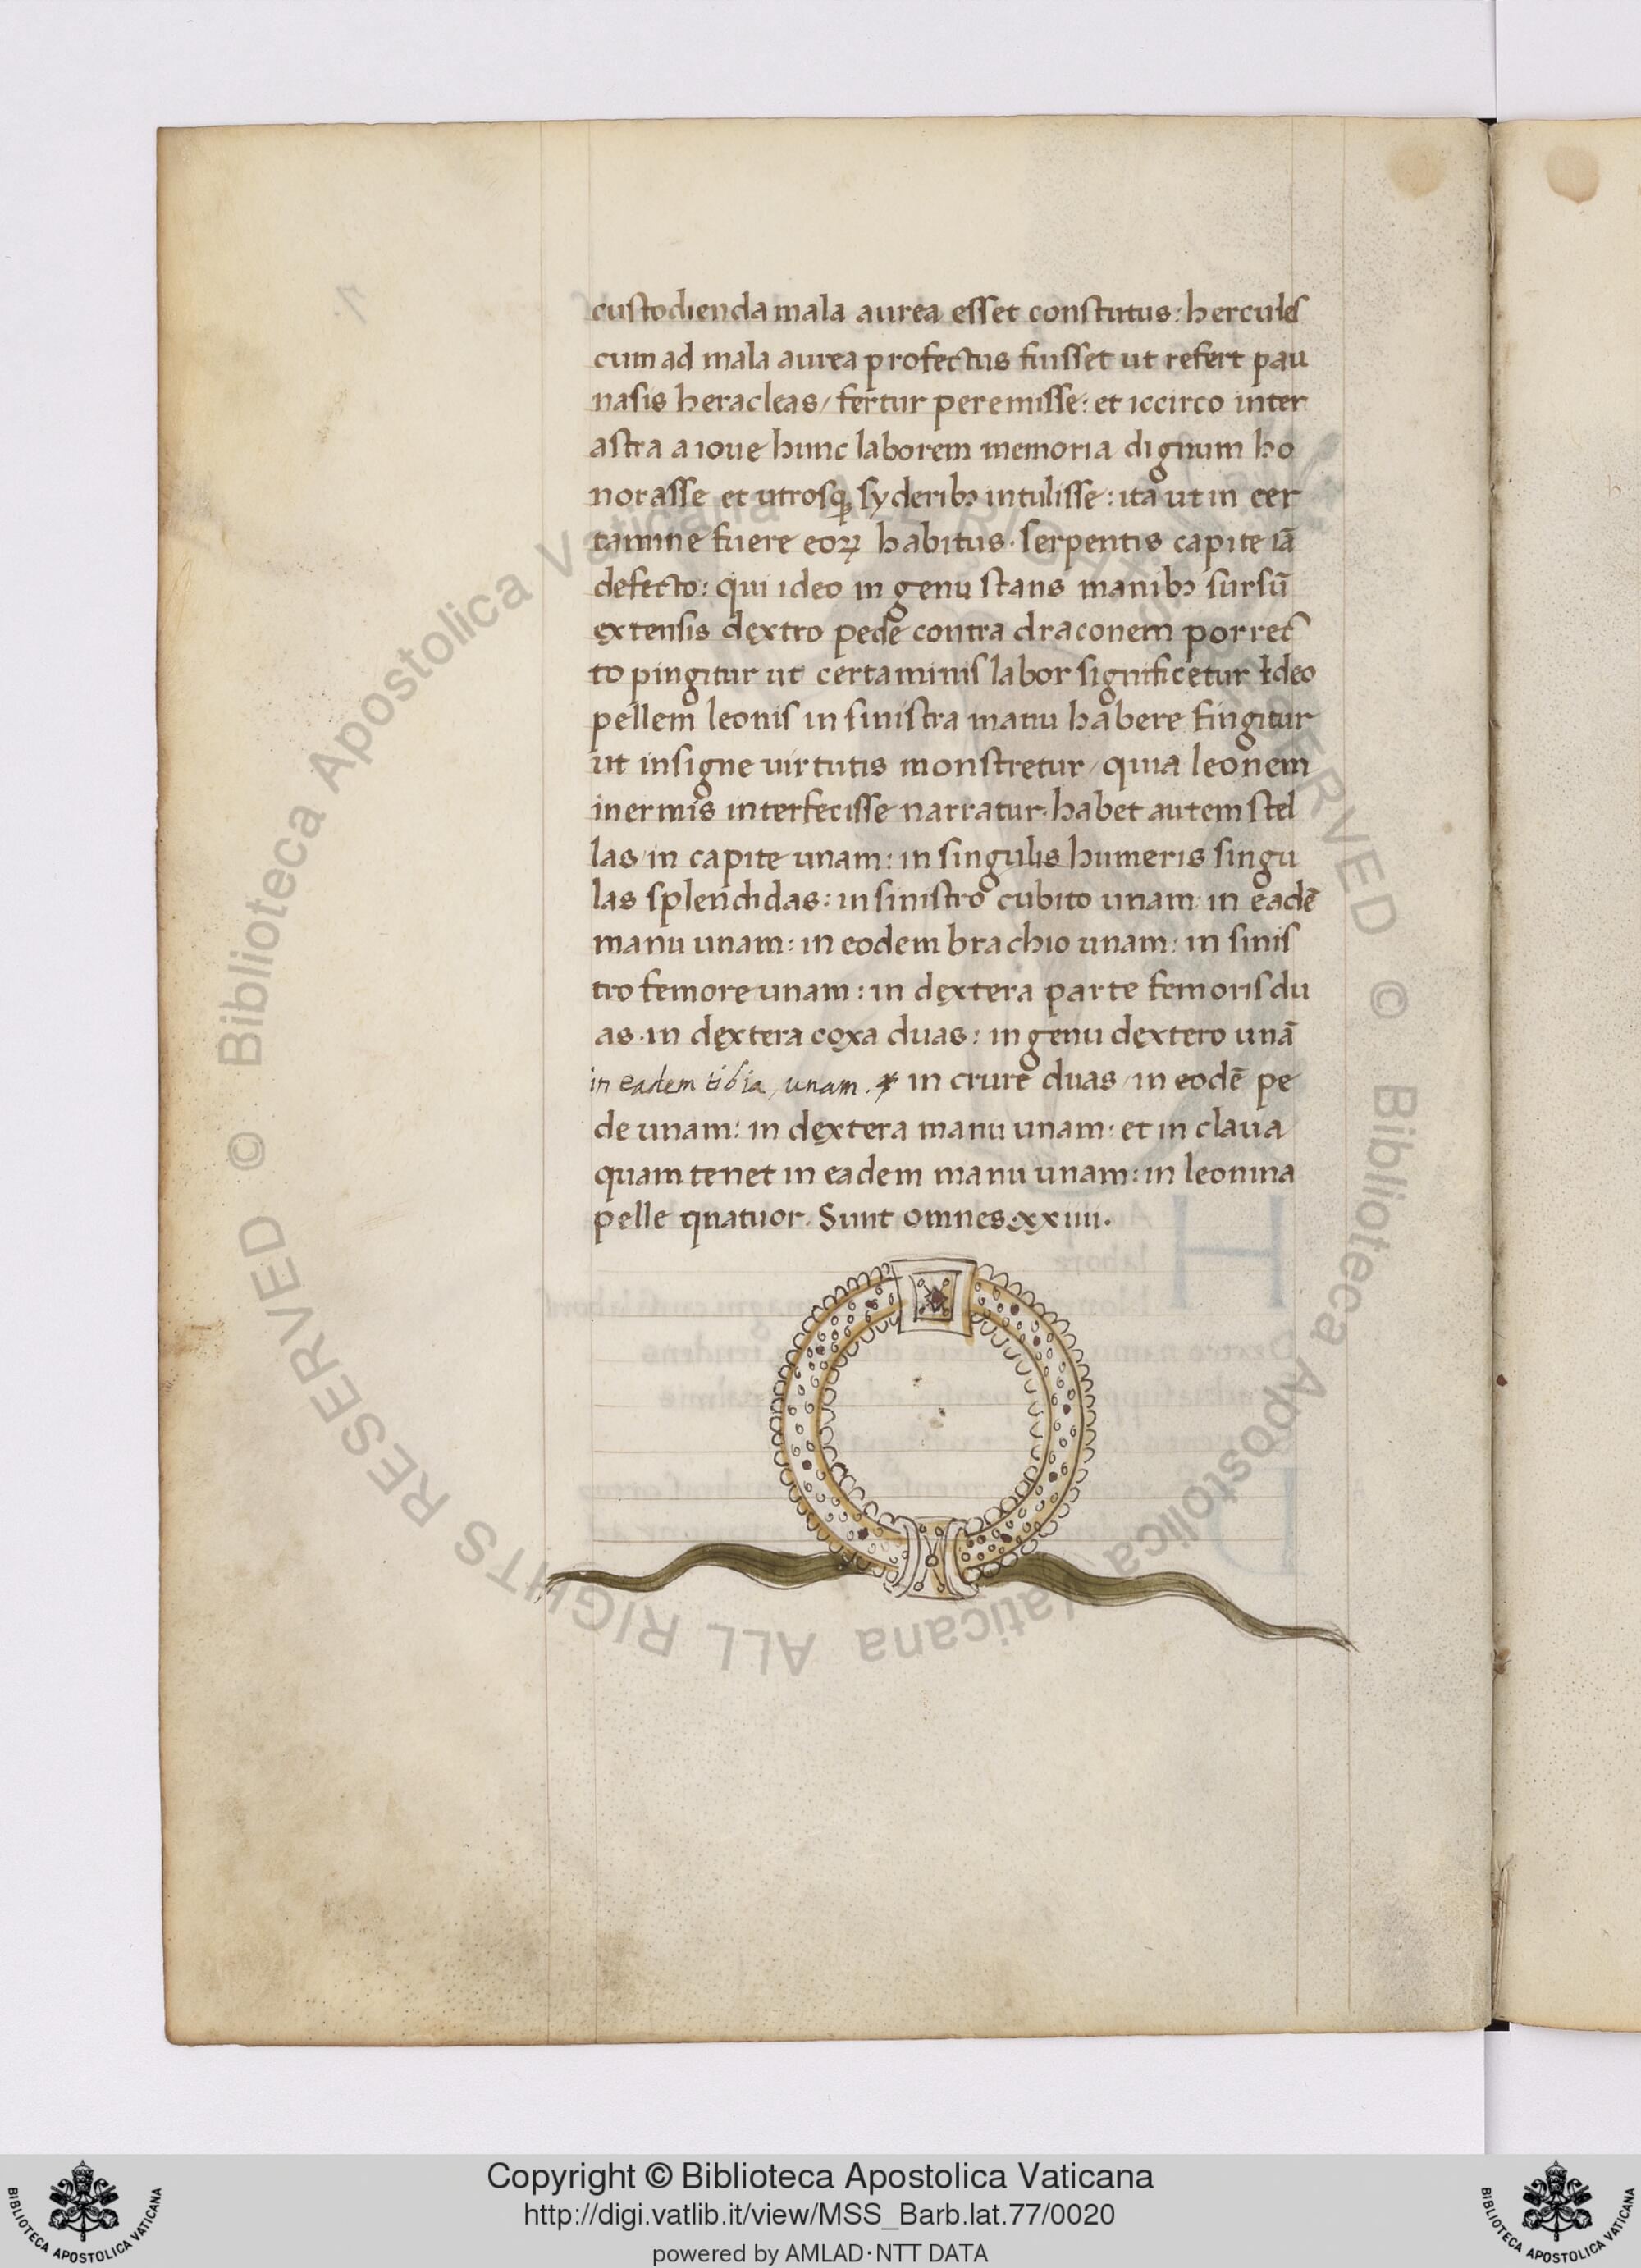 custodienda mala aurea esset constutus: hercules
cum ad mala aurea profectus fuisset ut refert pau
nasis heracleas/ fertur peremisse: et iccirco inter
astra a ioue hunc laborem memoria dignum ho
norasse et utrosqꝫ syderibꝫ intulisse: ita ut in cer
tamine fuere eoꝝ habitus. serpentis capite iā
defecto: qui ideo in genu stans manibꝫ sursū
extensis dextro pede contra draconem porrec
to pingitur ut certaminis labor significetur Ideo
pellem leonis in sinistra manu habere fingitur
ut insigne uirtutis monstretur/ quia leonem
inermis interfecisse narratur. habet autem stel
las/ in capite unam: in singulis humeris singu
las splendidas: in sinistro cubito unam: in eadē
manu unam: in eodem brachio unam: in sinis
tro femore unam: in dextera parte femoris du
as. in dextera coxa duas: in genu dextero unā
in eadem tibia, unam. in crure duas/ in eodē pe
de unam: in dextera manu unam. et in claua
quam tenet in eadem manu unam: in leonina
pelle quatuor. Sunt omnes .xxiiii.
© Biblioteca Apostolica Vaticana ALL RIGHTS RESERVED © Biblioteca Apostolica Vaticana ALL RIGHTS RESERVED
Copyright © Biblioteca Apostolica Vaticana
http://digi.vatlib.it/view/MSS_Barb.lat.77/0020
powered by AMLAD·NTT DATA
BIBLIOTECA APOSTOLICA VATICANA
BIBLIOTECA APOSTOLICA VATICANA